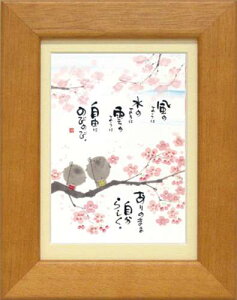 風の
ように
水の
ように
雲の
ように
自由に
のびのび。
ありのまま
自分
らしく。